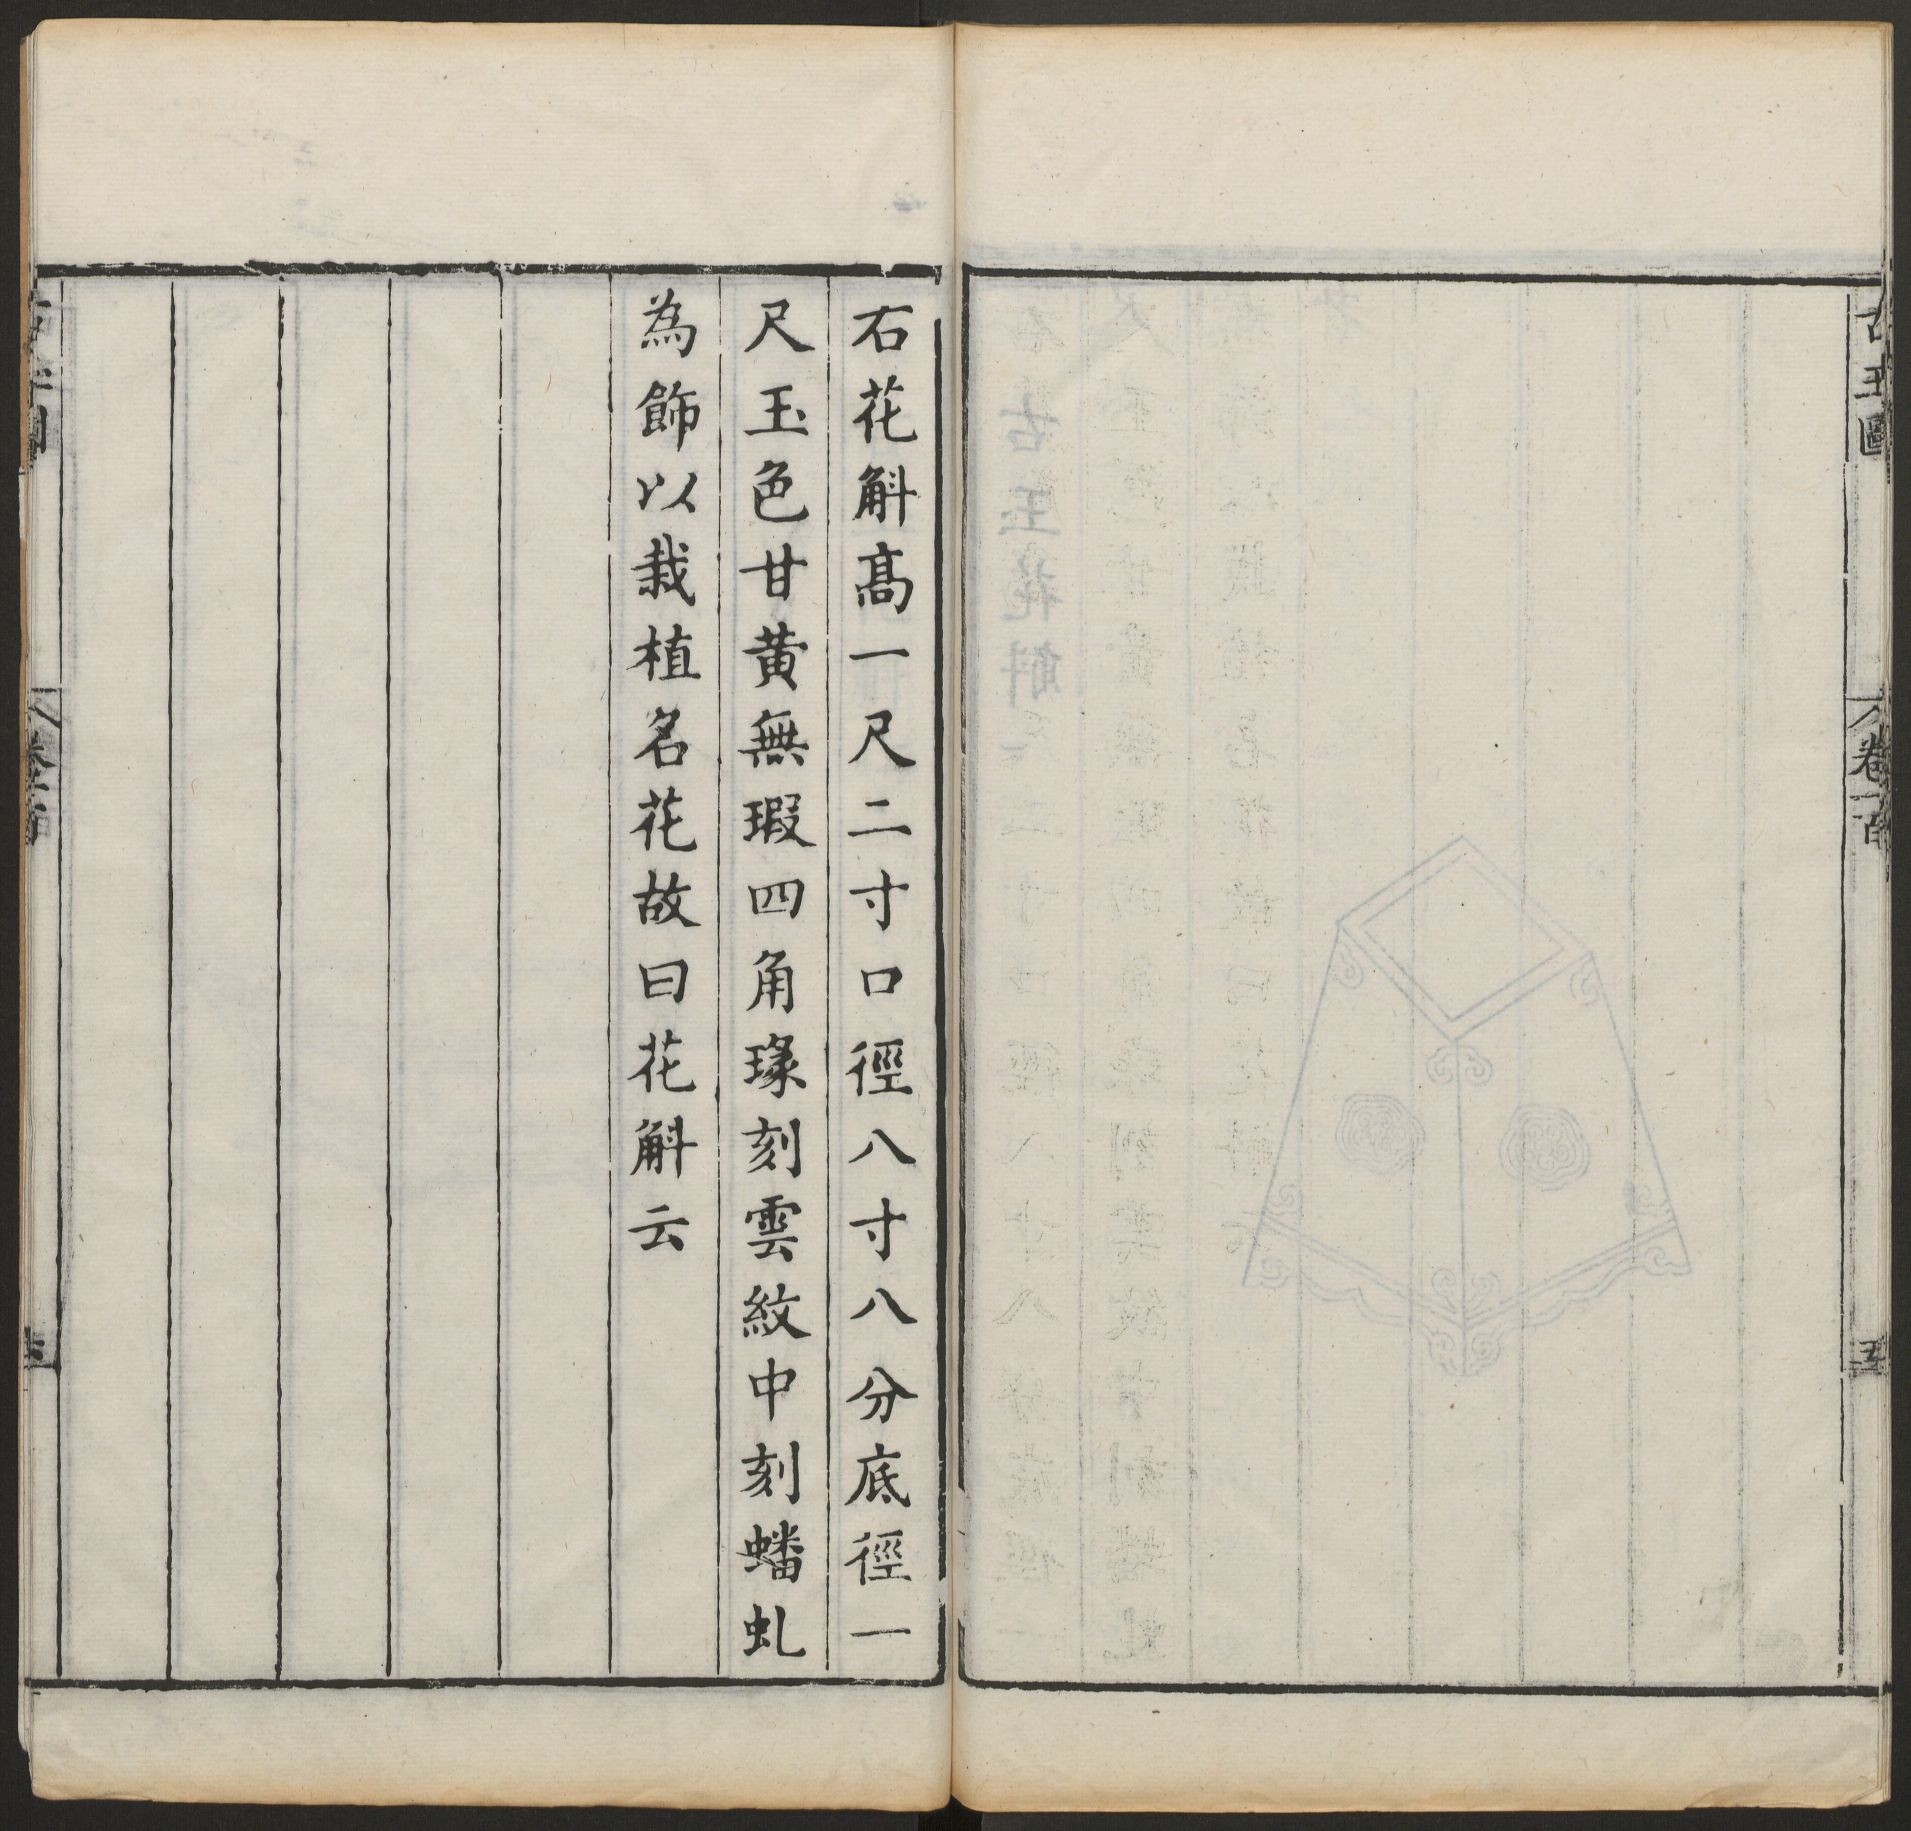 古玉圖
卷一百
五
右花斛高一尺二寸口徑八寸八分底徑一
尺玉色甘黃無瑕四角瑑刻雲紋中刻蟠虬
為飾以栽植名花故曰花斛云